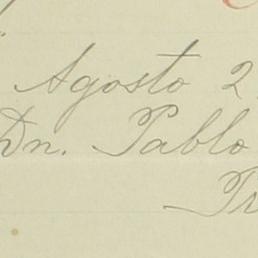 Agosto 2
Dn. Pablo
Tr